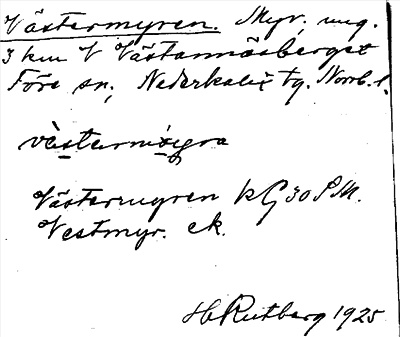 Västermyren. Myr, ung.
3 km V Västannäsberget
Töre sn, Nederkalix tg. Norrb. l.
västermi̯yra
Västermyren kG 30 S.M.
Vestmyr. ek.
H Rutberg 1925